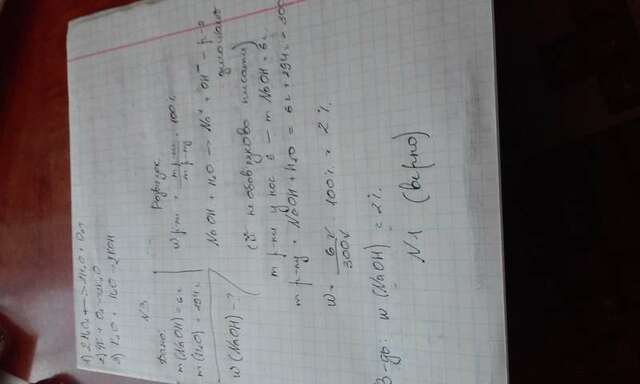 1) 2H₂O₂ ⟷ 2H₂O + O₂↑
2) 4K + O₂ → 2K₂O
3) K₂O + H₂O → 2KOH
N3
Дано:
m(NaOH) = 6г
m(H₂O) = 294г
w(NaOH) - ?
Розв'язок
W р-ни = m р-ни / m р-ну · 100%
NaOH + H₂O → Na⁺ + OH⁻ - р-я
дисоціації
(її не обов'язково писати)
m р-ни у нас є — m NaOH = 6г
m р-ну = NaOH + H₂O = 6г + 294г = 300
W = 6г / 300г · 100% = 2%.
В-дь: w (NaOH) = 2%.
N1 (вірно)